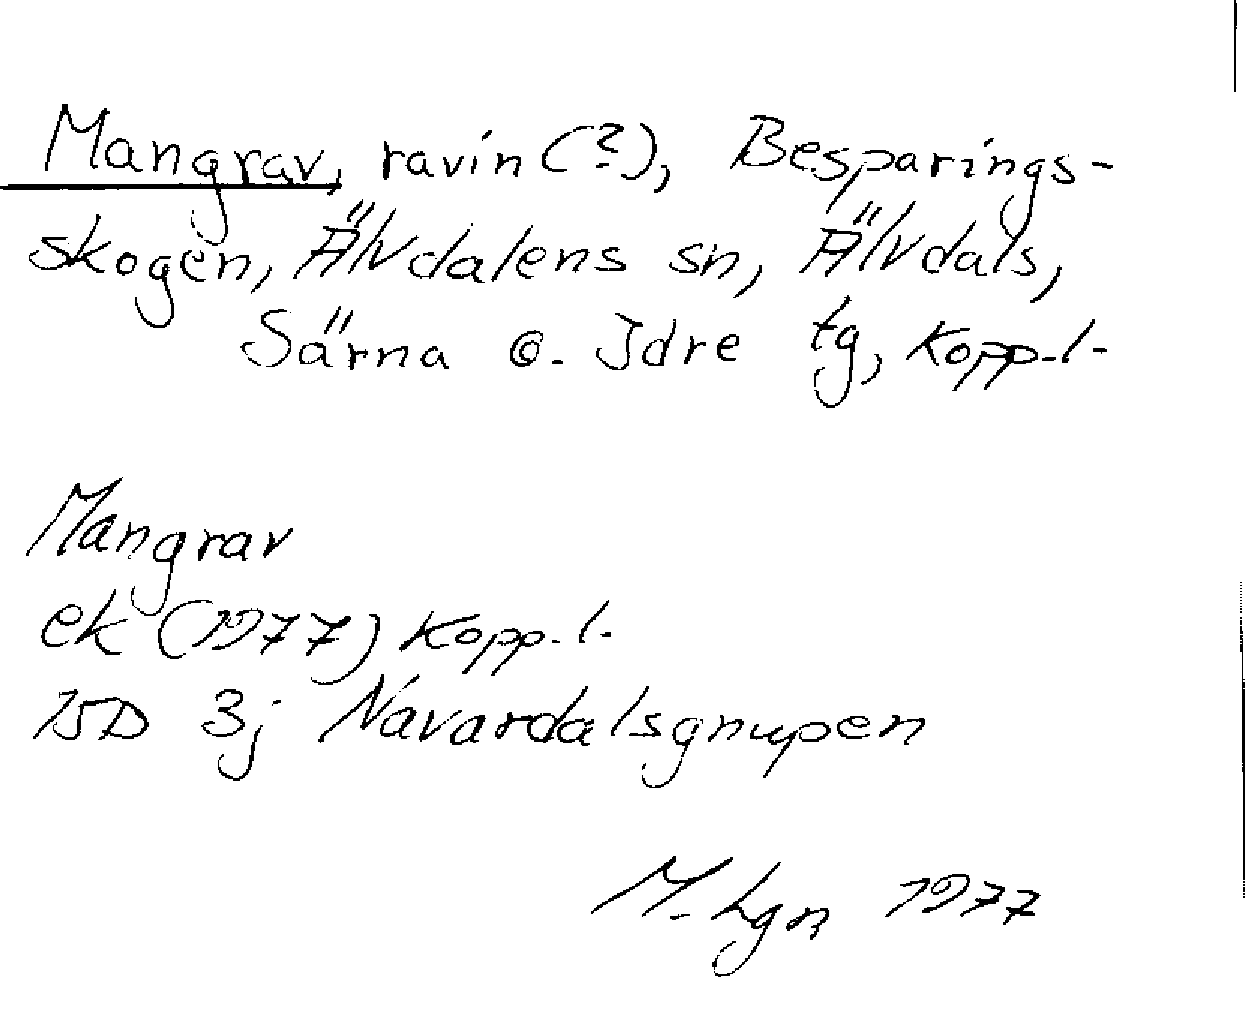 Mangrav, ravin (?), Besparings-
skogen, Älvdalens sn, Älvdals,
Särna o. Idre tg, Kopp.l.
Mangrav
ek (1977) Kopp.l.
15D 3j Navardalsgnupen
M. Lgn 1977